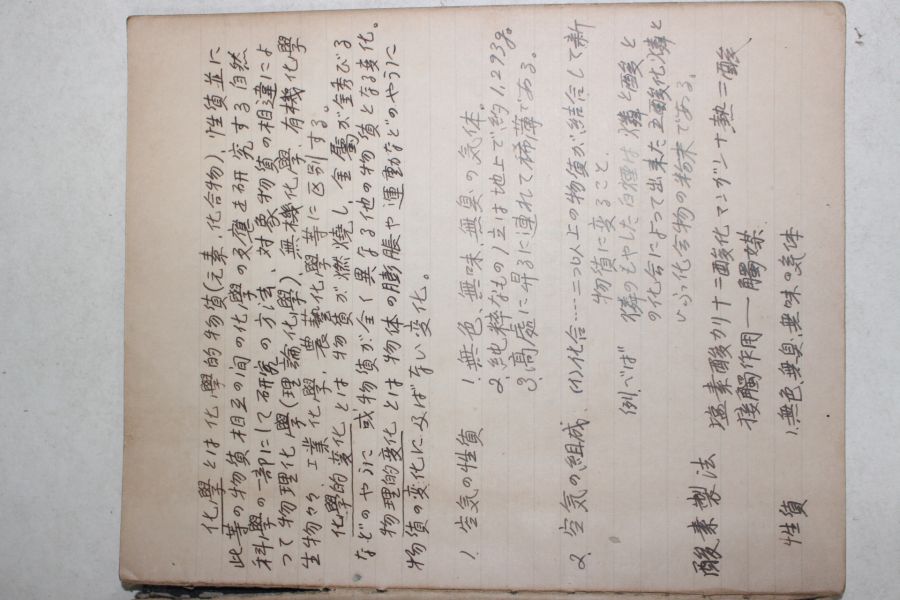 化學とは化學的物質(元素、化合物)、性質並に
此等の物質相互の間の化學的反應を研究する自然
科學の一部にして研究の方法、対象物質の相違によ
って物理化學(理論化學)、無機化學、有機化學
生物化學、工業化學、農藝化學等に区別する。
化學的変化とは物質が燃焼し、金属が全秀びる
などのやうに或物質が全く異なる他の物質となる変化。
物理的変化とは物体の膨脹や運動などのやうに
物質の変化に及ばない変化。
1. 空気の性質 1.無色、無味、無臭の気体。
2.純粋なもの1立は地上で約1.293g。
3.高處に昇るに連れて稀薄である。
2. 空気の組成 (1)化合……二つ以上の物質が結合して新
物質に変ること。
例へば 燐のもやした白煙は燐と酸と
の化合によって出来た五酸化燐と
いふ化合物の粉末である。
酸素製法 塩素酸カリ+二酸化マンガン+熱=酸
接触作用―觸媒
性質 1.無色、無臭、無味の気体